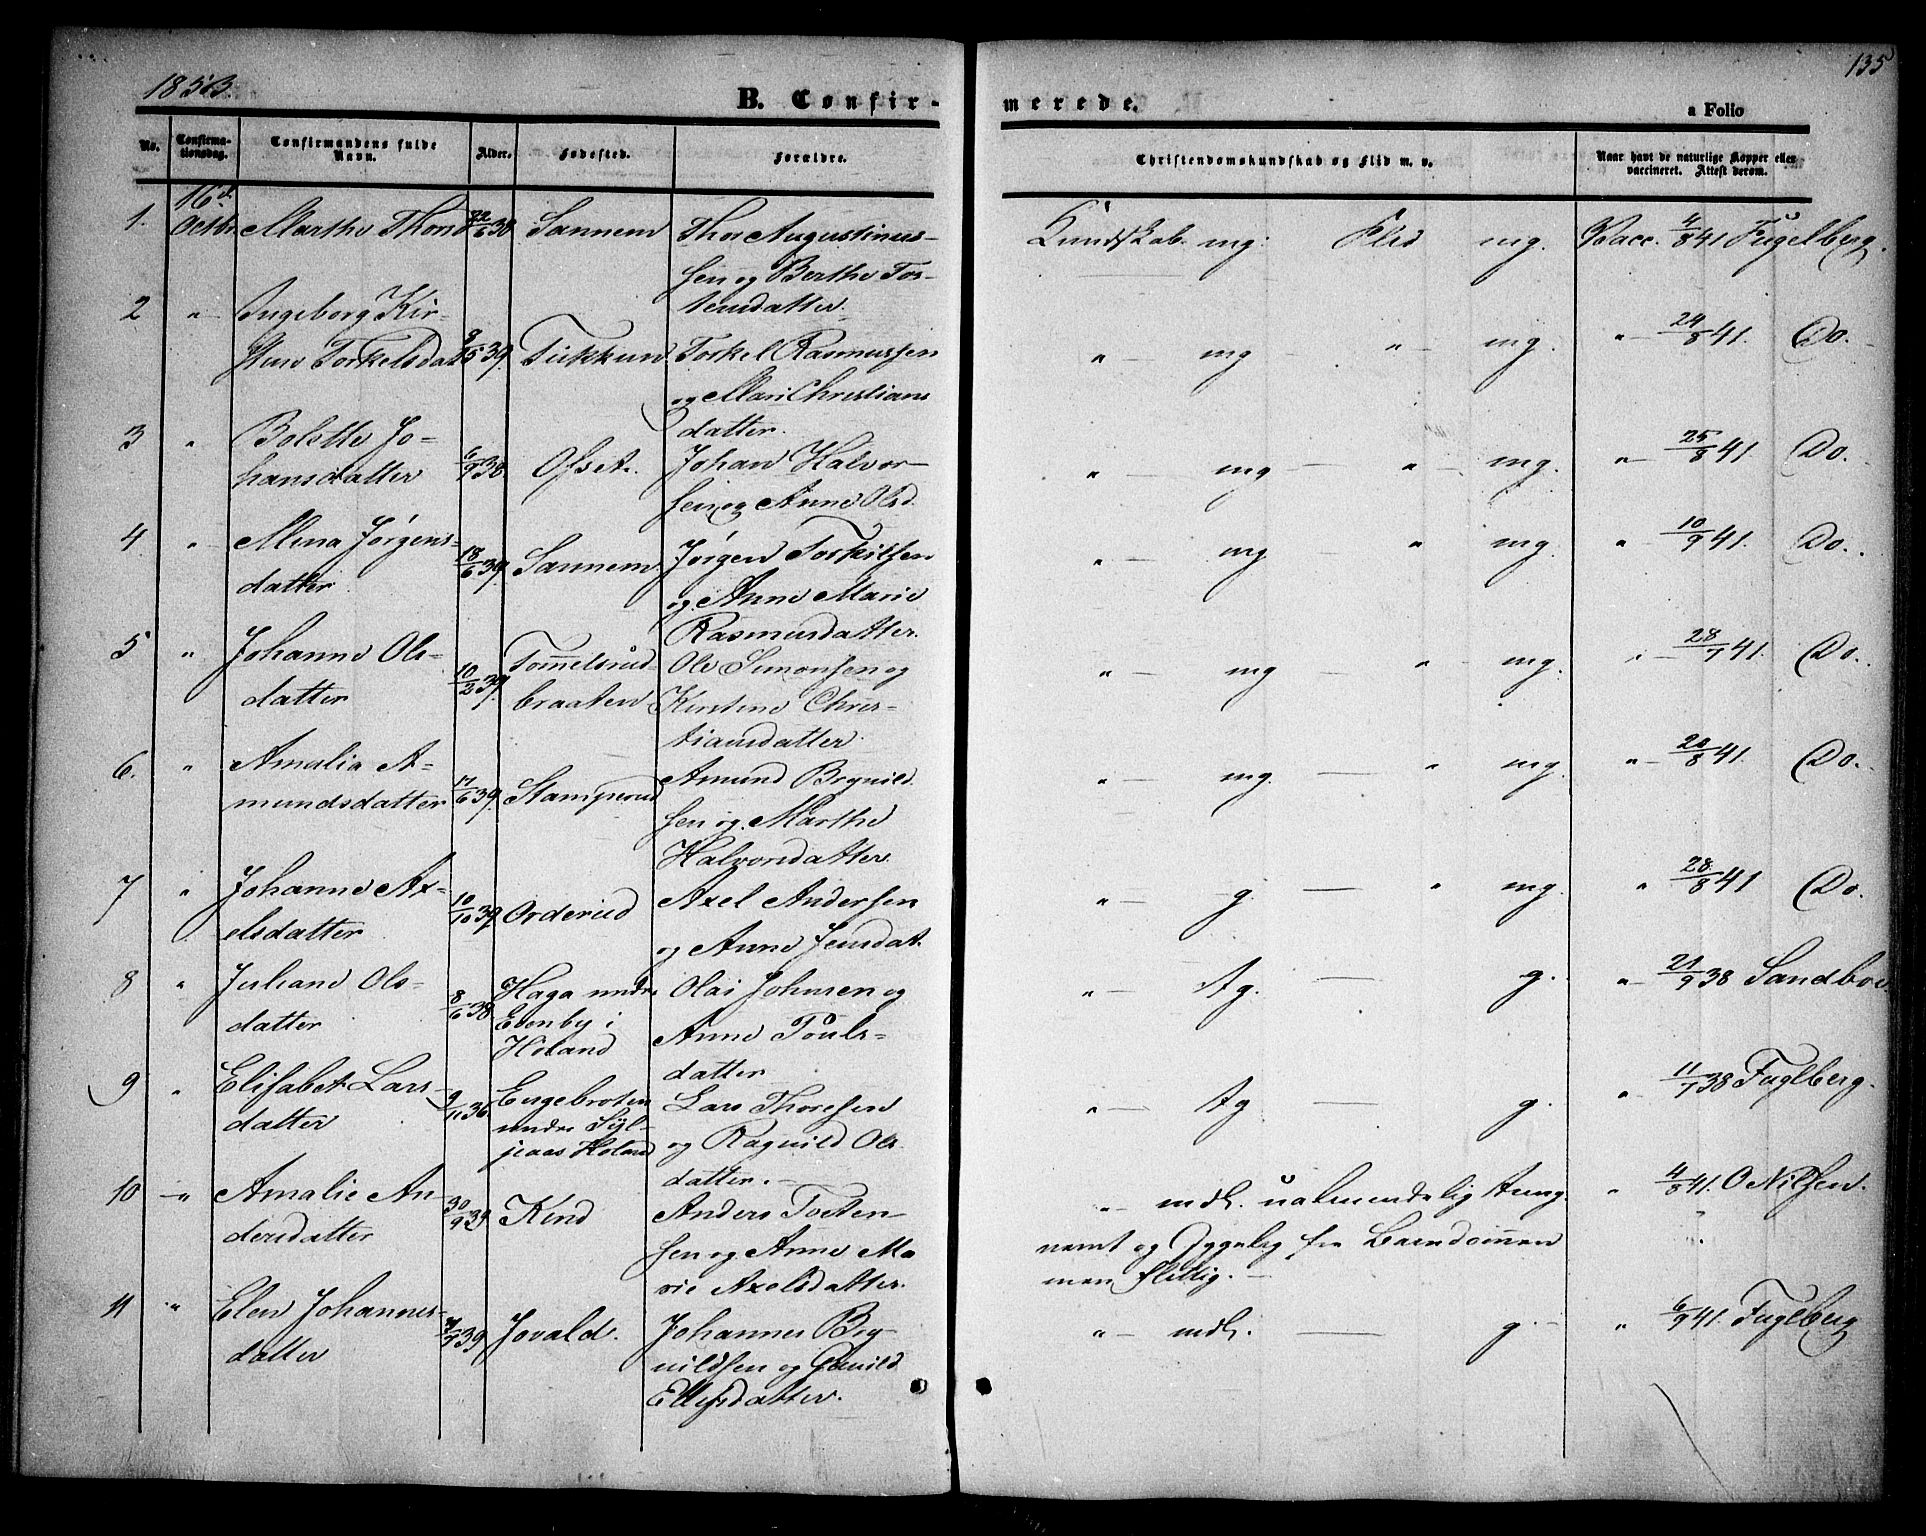 1853.
135
B. Confir-
merede.
a Folio
No.
Confirma-
tionsdag.
Confirmandens fulde
Navn.
Alder.
Fødested.
Forældre.
Christendomskundskab og Flid m. v.
Naar havt de naturlige Kopper eller
vaccineret. Attest derom.
1. 16d Octbr. Marthe Thorsd 22/6 38 Sannem Thor Augustinus-
sen og Berthe Tor-
stensdatter.
Kundskab mg. Flid mg. Vacc. 4/8 41 Fugelberg.
2 " Ingeborg Kir-
stine Torkelsdat 9/5 39. Tukkun Torkel Rasmussen
og Mari Christians
datter.
" mg " mg. " 24/8 41. Do.
3 " Bolette Jo-
hansdatter 6/9 38 Ofset. Johan Halvor-
sen og Anne Olsd.
" mg " mg. " 25/8 41. Do.
4 " Mina Jørgens-
datter 18/6 39. Sannem Jørgen Torkilsen
og Anne Marie
Rasmusdatter.
" mg. " mg. " 10/9 41. Do.
5 " Johanne Ols-
datter 10/2 39. Tommelsrud-
braaten Ole Simonsen og
Kirstine Chris-
tiansdatter.
" mg " mg. " 28/9 41. Do.
6. " Amalia A-
mundsdatter 17/6 39. Stamperud Amund Bognild
sen og Marthe
Halvorsdatter.
" mg. " mg. " 28/8 41. Do.
7 " Johanne Ax-
elsdatter 10/10 39. Orderud Axel Andersen
og Anne Jensdat.
" g. " mg. " 28/8 41 Do.
8 " Juliane Ols-
datter 8/6 38. Haga undr.
Evenby i
Høland Olai Johnsen og
Anne Pouls-
datter
" tg. g. " 21/9 38 Sandboe.
9 " Elisabet Lars-
datter 9/11 36. Engebroten
undr
Høland Lars Thoresen
og Ragnild Ols
datter.
" tg g. " 11/7 38 Fuglberg.
10 " Amalie An
dersdatter 30/9 39. Kind Anders Tosten-
sen og Anne Ma
rie Axelsdatter.
" mdl. ualmindelig tung-
nemt og Sygelig fra Barndommen
men flittig.
" 4/8 41. O Nilsen.
11 " Elen Johannes-
datter 39. Jovald. Johannes Bog-
nildsen og Gunild
Ellefsdatter.
" mdl. g. " 6/9 41. Fuglberg